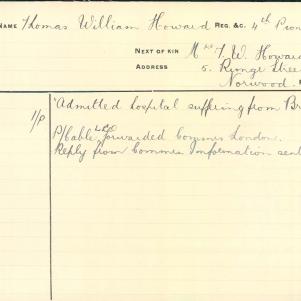 NAME Thomas William Howard REG. &C. 4th Pion
NEXT OF KIN Mrs T W. Howard
ADDRESS 5. Stree
Norwood.
"Admitted hospital suffering from Br
1/p P/Cable Forwarded Commis London.
Reply from Commis Information sent